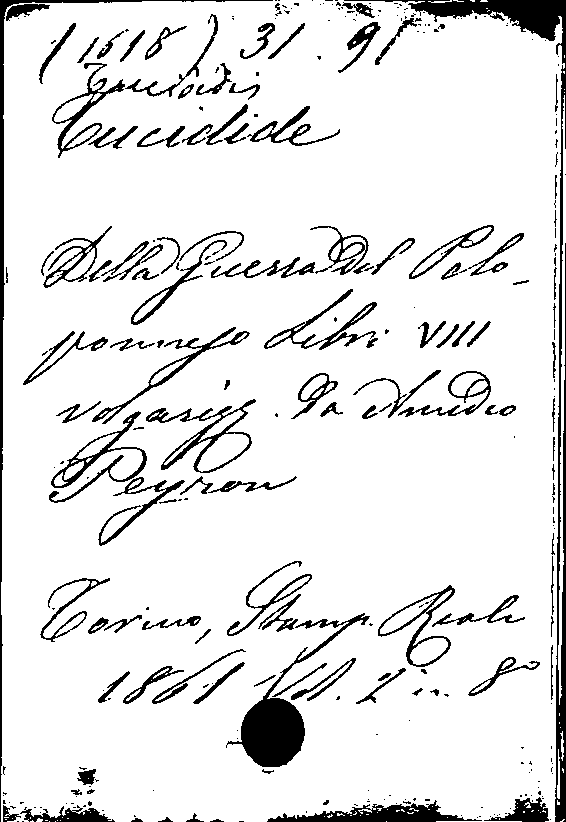 (1618) 31.91
Tucidide
Della Guerra del Pelo-
ponneso Libri VIII
volgarizz. da Amedeo
Peyron
Torino, Stamp. Reale
1861 Vol. 2 in 8°